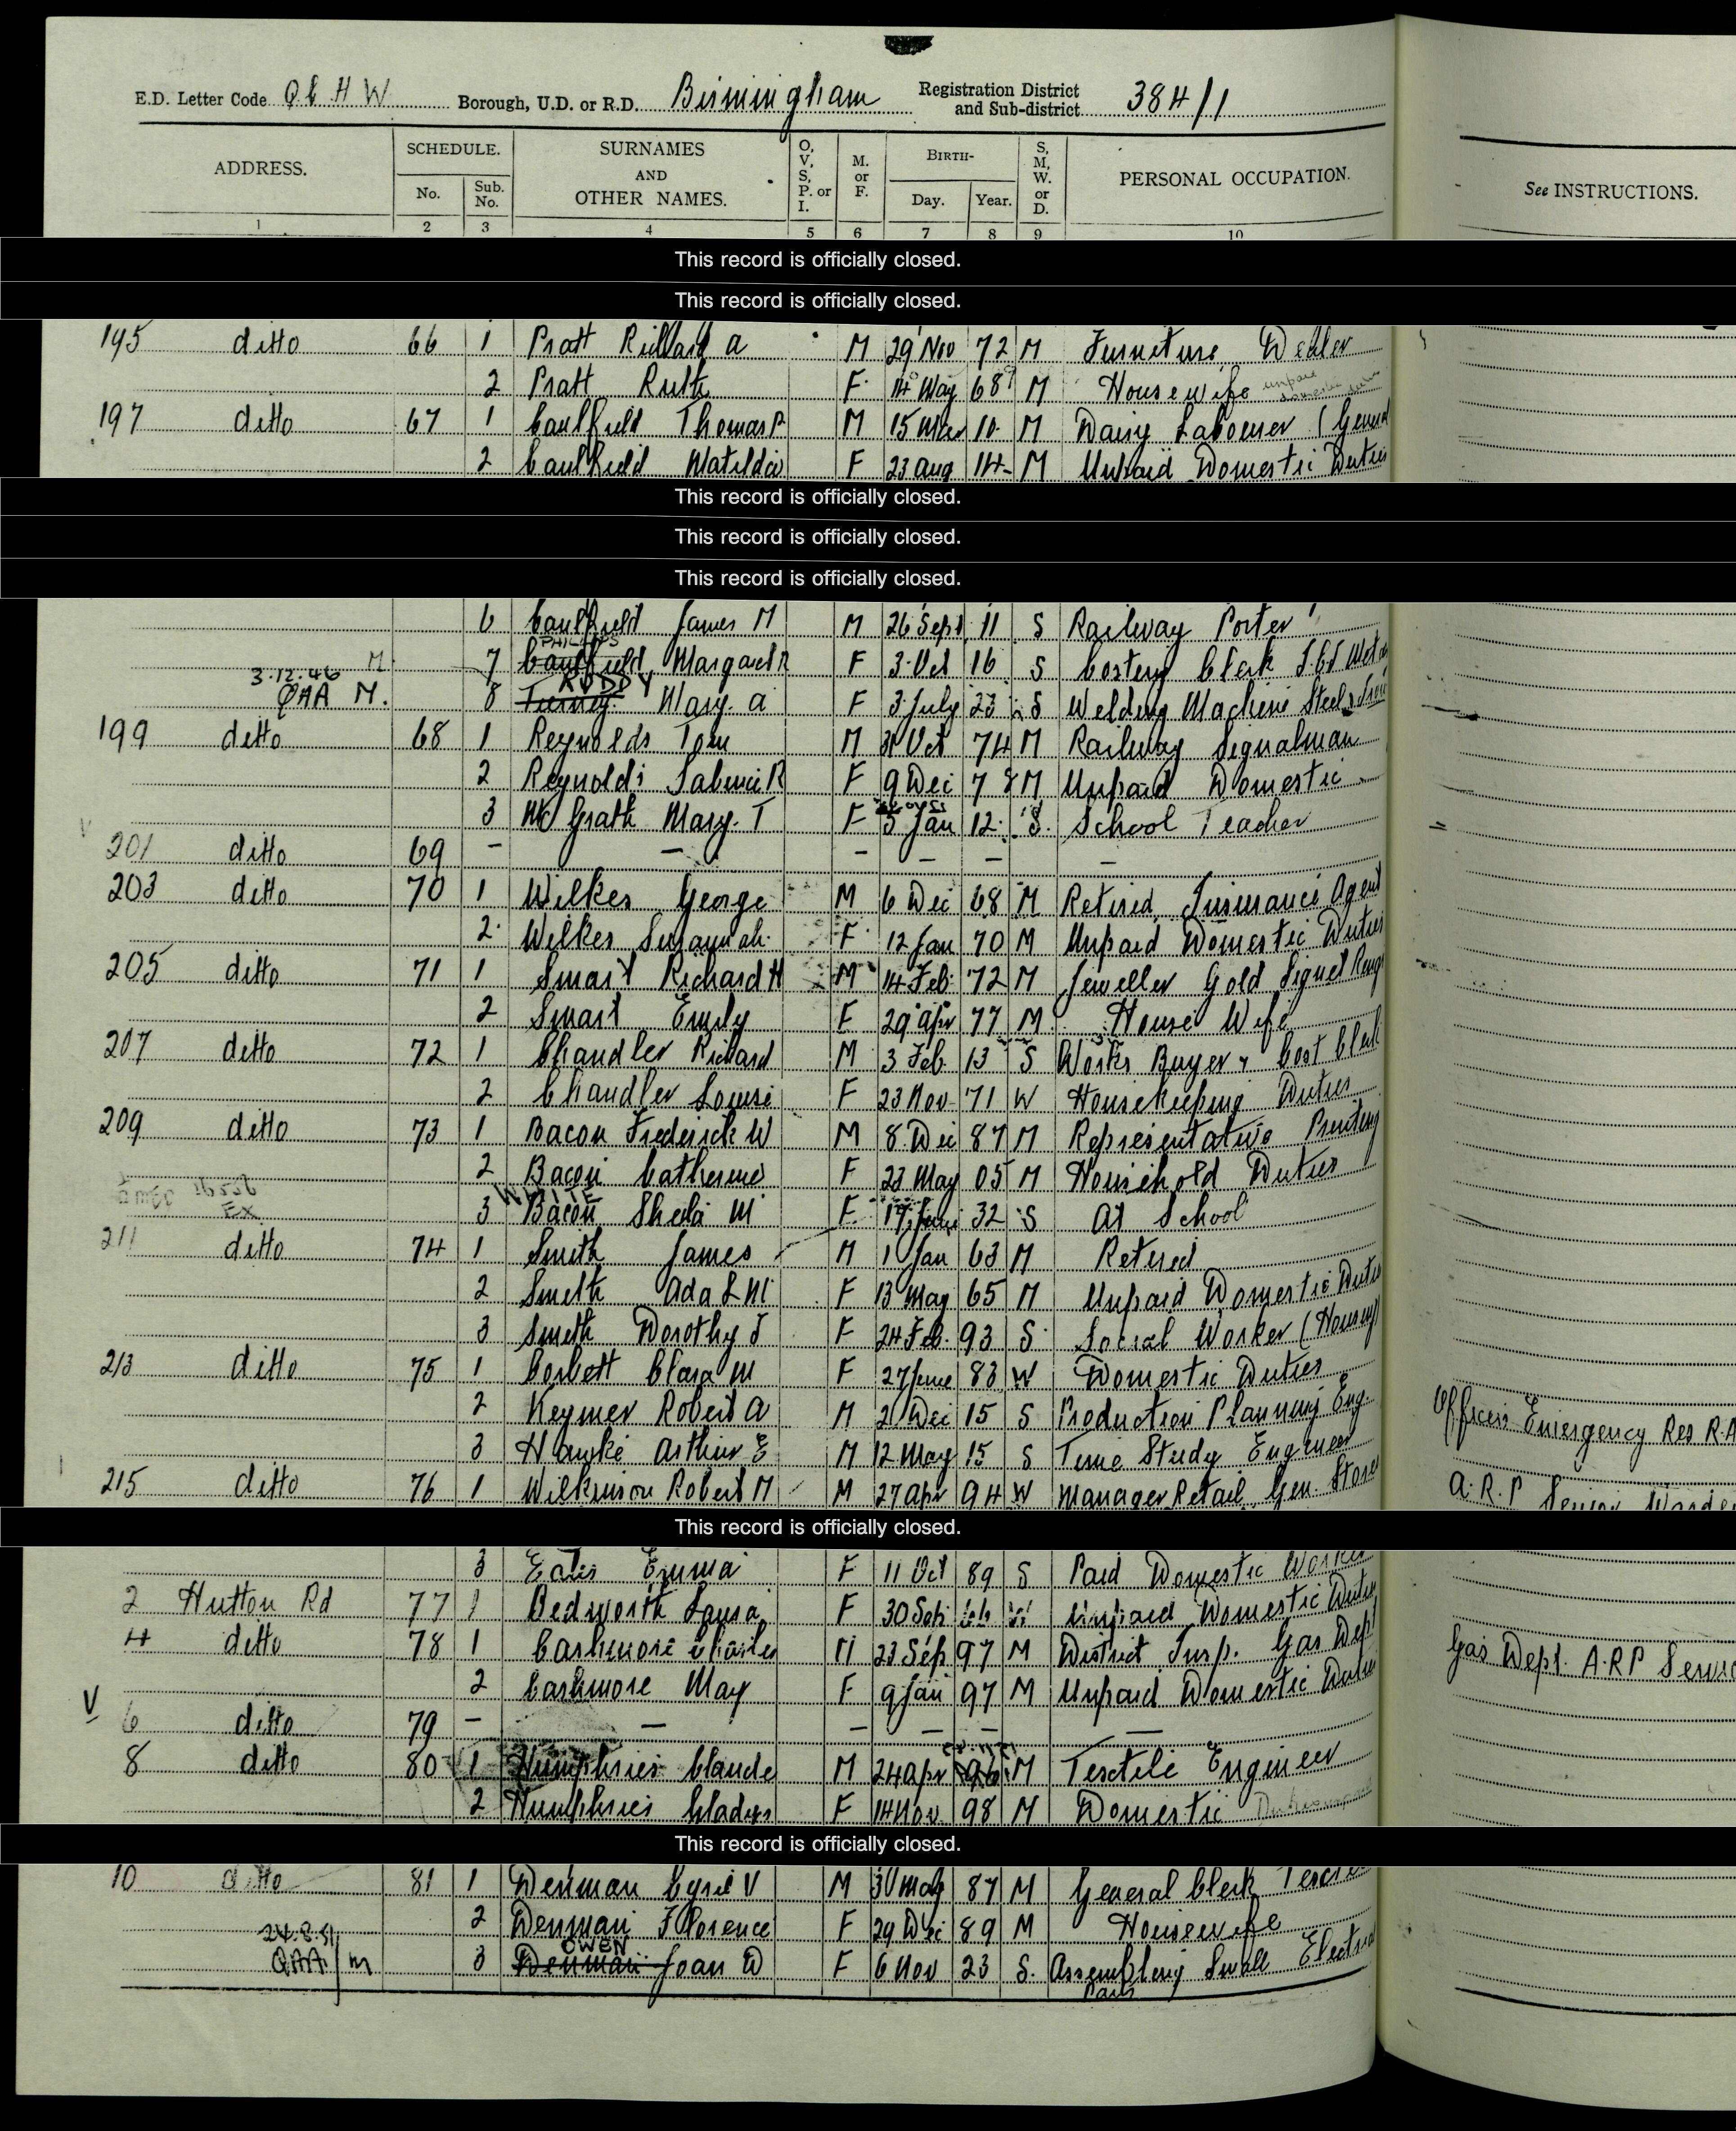 E.D. Letter Code Q b H W Borough, U.D. or R.D. Birmingham Registration District and Sub-district 384/1
ADDRESS. SCHEDULE. No. Sub. No. SURNAMES AND OTHER NAMES. O, V, S, P. or I. M. or F. BIRTH- Day. Year. S, M, W. or D. PERSONAL OCCUPATION. See INSTRUCTIONS.
1 2 3 4 5 6 7 8 9 10
This record is officially closed.
This record is officially closed.
195 ditto 66 1 Pratt Richard A M 29 Nov 72 M Furniture Dealer
2 Pratt Ruth F 14 May 68 M Housewife unpaid domestic duties
197 ditto 67 1 Caulfield Thomas P M 15 Mar 10 M Dairy Labourer (General
2 Caulfield Matilda F 23 Aug 14 M Unpaid Domestic Duties
This record is officially closed.
This record is officially closed.
This record is officially closed.
6 Caulfield James M M 26 Sept 11 S Railway Porter
PHILLIPS
M 7 Caulfield Margaret R F 3 Oct 16 S Costing Clerk
3.12.46 RUDDY
QAA M. 8 Mary A F 3 July 23 S Welding Machine
199 ditto 68 1 Reynolds Tom M 31 Oct 74 M Railway Signalman
2 Reynolds R F 9 Dec 78 M Unpaid Domestic
3 McGrath Mary T F 5 Jan 12 S School Teacher
V 201 ditto 69 - - - - - -
203 ditto 70 1 Wilkes George M 6 Dec 68 M Retired Insurance Agent
2 Wilkes Susannah F 12 Jan 70 M Unpaid Domestic Duties
205 ditto 71 1 Smart Richard H M 14 Feb 72 M Jeweller Gold Signet Rings
2 Smart Emily F 29 Apr 77 M House Wife
207 ditto 72 1 Chandler Richard M 3 Feb 13 S Works Buyer & Cost Clerk
2 Chandler Louise F 23 Nov 71 W Housekeeping Duties
209 ditto 73 1 Bacon Frederick W M 8 Dec 87 M Representative Printing
2 Bacon Catherine F 23 May 05 M Household Duties
WHITE
EX 3 Bacon Sheila M F 32 S At School
211 ditto 74 1 Smith James M 1 Jan 63 M Retired
2 Smith Ada L M F 13 May 65 M Unpaid Domestic Duties
3 Smith Dorothy J F 24 Feb 93 S Social Worker (Housing)
213 ditto 75 1 Corbett Clara M F 27 June 83 W Domestic Duties
2 Keymer Robert A M 21 Dec 15 S Production Planning Eng. Officers Emergency Res R.A
3 Hawke Arthur E M 12 May 15 S Time Study Engineer
215 ditto 76 1 Wilkinson Robert H M 27 Apr 94 W Manager Retail Gen. Stores A.R.P Senior Warden
This record is officially closed.
3 Emma F 11 Oct 89 S Paid Domestic Worker
2 Hutton Rd 77 1 Bedworth Laura F 30 Sep 66 W Unpaid Domestic Duties
4 ditto 78 1 Cashmore Charles M 23 Sep 97 M District Insp. Gas Dept Gas Dept. A.R.P Service
2 Cashmore May F 9 Jan 97 M Unpaid Domestic Duties
V 6 ditto 79 - - - - - -
8 ditto 80 1 Humphries Claude M 24 Apr 96 M Textile Engineer
2 Humphries Gladys F 14 Nov 98 M Domestic
This record is officially closed.
10 ditto 81 1 Denman Cyril V M 30 May 87 M General Clerk
2 Denman Florence F 29 Dec 89 M Housewife
24.8.51 OWEN
QAA/m 3 Denman Joan D F 6 Nov 23 S. Assembling Small Electrical
Parts